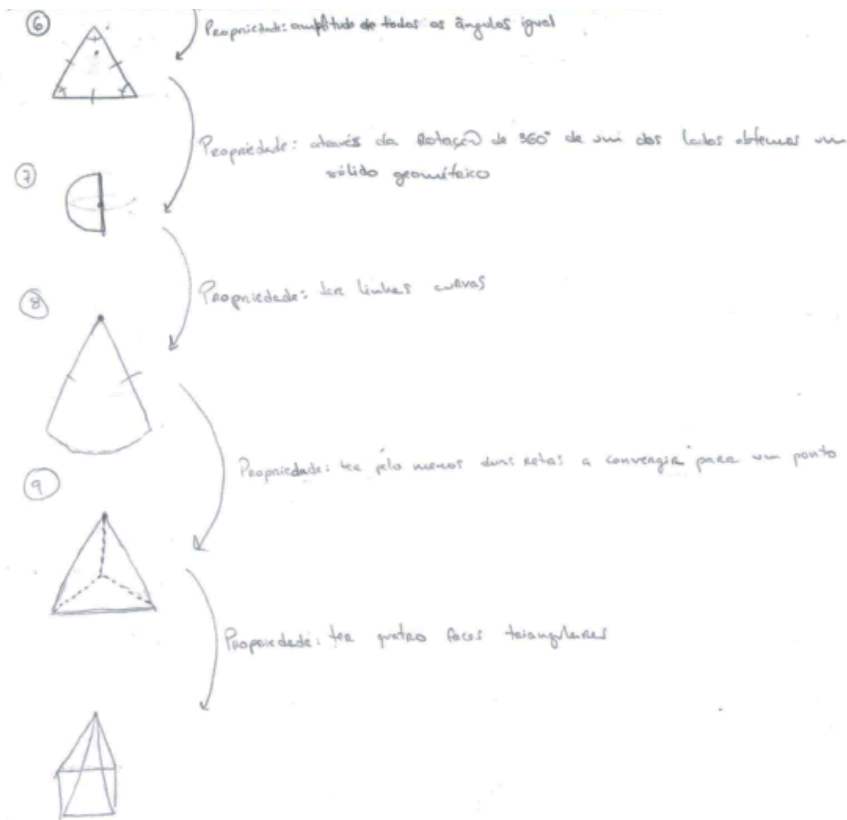 6
Propriedade: amplitude de todos os ângulos igual
Propriedade: através da Rotação de 360° de um dos lados obtemos um
sólido geométrico
7
8
Propriedade: ter linhas curvas
Propriedade: ter pelo menos duas retas a convergir para um ponto
9
Propriedade: ter quatro faces triangulares